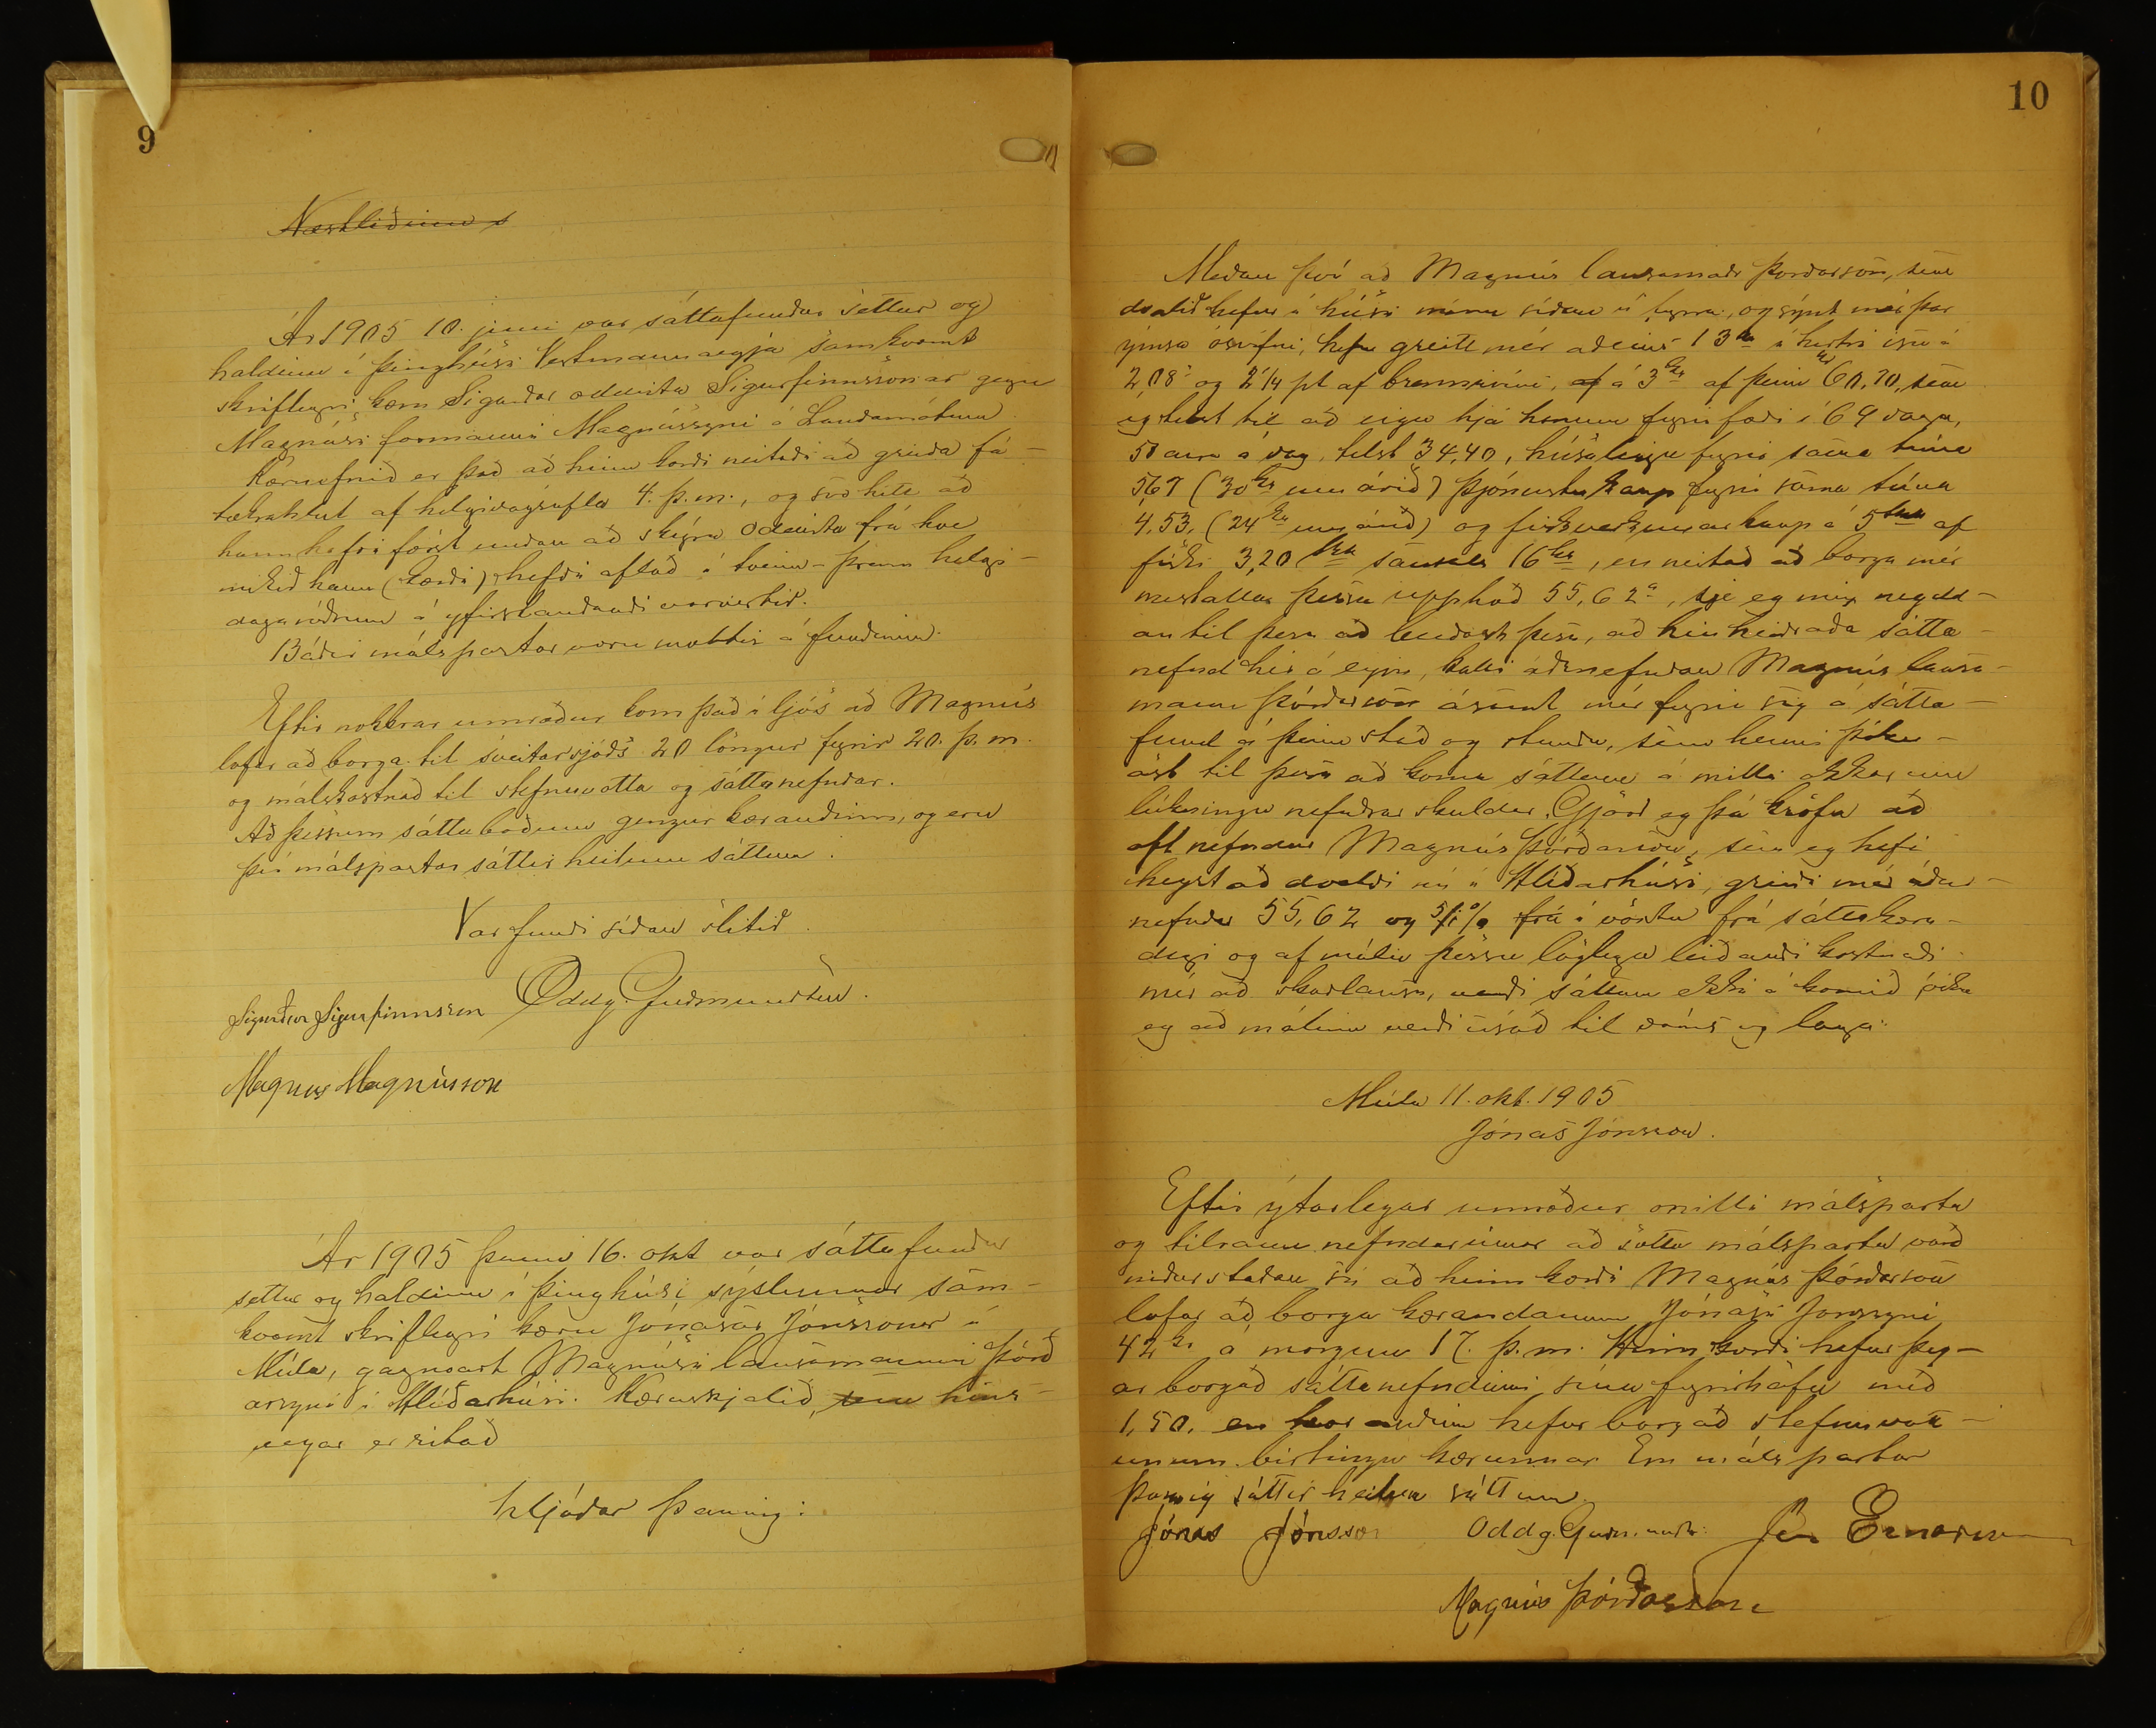 9
Næstliðinn s
Ár 1905 10. júni var sáttafundur settur og
haldinn í þinghúsi Vestmannaeyja samkvæmt
skriflegri kæru Sigurðar oddvita Sigurfinnssonar gegn
Magnúsi formanni Magnússyni á Landamótum.
Kæruefnið er það að hinn kærði neitaði að greiða fá-
tækrahlut af helgidagsafla 4. þ.m., og svo hitt að
hann hafi færst undan að skýra oddvita frá hve
mikið hann (kærði) hefði aflað í tveim-þrem helgi-
dagaróðrum á yfirstandandi vorvertíð.
Báðir málspartar voru mættir á fundinum.
Eftir nokkrar umræður kom það í ljós að Magnús
lofar að borga til sveitarsjóðs 20 löngur fyrir 20. þ.m.
og málskostnað til stefnuvotta og sáttanefndar.
Að þessum sáttaboðum gengur kærandinn, og eru
þeir málspartar sáttir heilum sáttum.
Var fundi síðan slitið.
Sigurður Sigurfinnsson Oddg. Guðmundsen.
Magnus Magnússon
Ár 1905 þann 16. okt var sáttafundur
settur og haldinn í þinghúsi sýslunnar sam-
kvæmt skriflegri kæru Jónasar Jónssonar í
Múla, gagnvart Magnúsi lausamanni Þórð
arsyni í Hlíðarhúsi. Kæruskjalið, sem hins-
vegar er ritað
hljóðar þannig:
10
Meðan því að Magnús lausamaðr Þórðarson, sem
dvalið hefur í húsi mínu síðan í fyrra, og sýnt mér þar
ýmsa ósvífni, hefur greitt mér aðeins 13 í hertri ýsu á
2,08 og 2 1/4 pt af brennivíni, af á 3 kr af þeim kr 60,70, sem
eg telst til að eiga hjá honum fyrir fæði í 69 daga,
50 aura á dag, telst 34,40, húsaleigu fyrir sama tíma
5,67 (30 kr um árið) þjónustukaup fyrir sama tíma
4,53, (24 kr um árið) og fiskverkunarkaup á 5 af
fiski 3,20 samtals 16 kr, en neitað að borga mér
mestallan þessa upphæð 55,62 a, sje eg mig neydd-
an til þess að beiðast þess, að hin heiðraða sátta-
nefnd hér á eyju, kalli áðrnefndan Magnús lausa-
mann Þórðarson ásamt mér fyrir sig á sátta-
fund á þeim stað og stundu, sem henni þókn-
ast til þess að koma sáttum á milli okkar um
lúkningu nefndrar skuldar. Gjöri eg þá kröfu að
oft nefndur Magnús Þórðarson, sem eg hefi
heyrt að dveldi nú í Hlíðarhúsi, greiði mér áður-
nefndar 55,62 og 5% frá í vöxtu frá sáttakæru-
degi og af máli þessu löglega leiðandi kostnaði
mér að skaðlausu, verði sáttum ekki á komið óska
eg að málinu verði vísað til dóms og laga.
Múla 11. okt. 1905
Jónas Jónsson.
Eftir ýtarlegar umræður milli málsparta
og tilraun nefndarinnar að sætta málsparta varð
niðurstaðan sú að hinn kærði Magnús Þórðarson
lofar að borga kærandanum Jónasi Jónssyni
42 kr á morgun 17. þ.m. Hinn kærði hefur þeg-
ar borgað sáttanefndinni sína fyrirhöfn með
1,50. en kærandinn hefur borgað stefnuvott-
unum birtingu kærunnar. Eru málspartar
þannig sáttir heilum sáttum.
Jónas Jónsson Oddg. Guðmunds. Jón Einarsson
Magnús Þórðarson